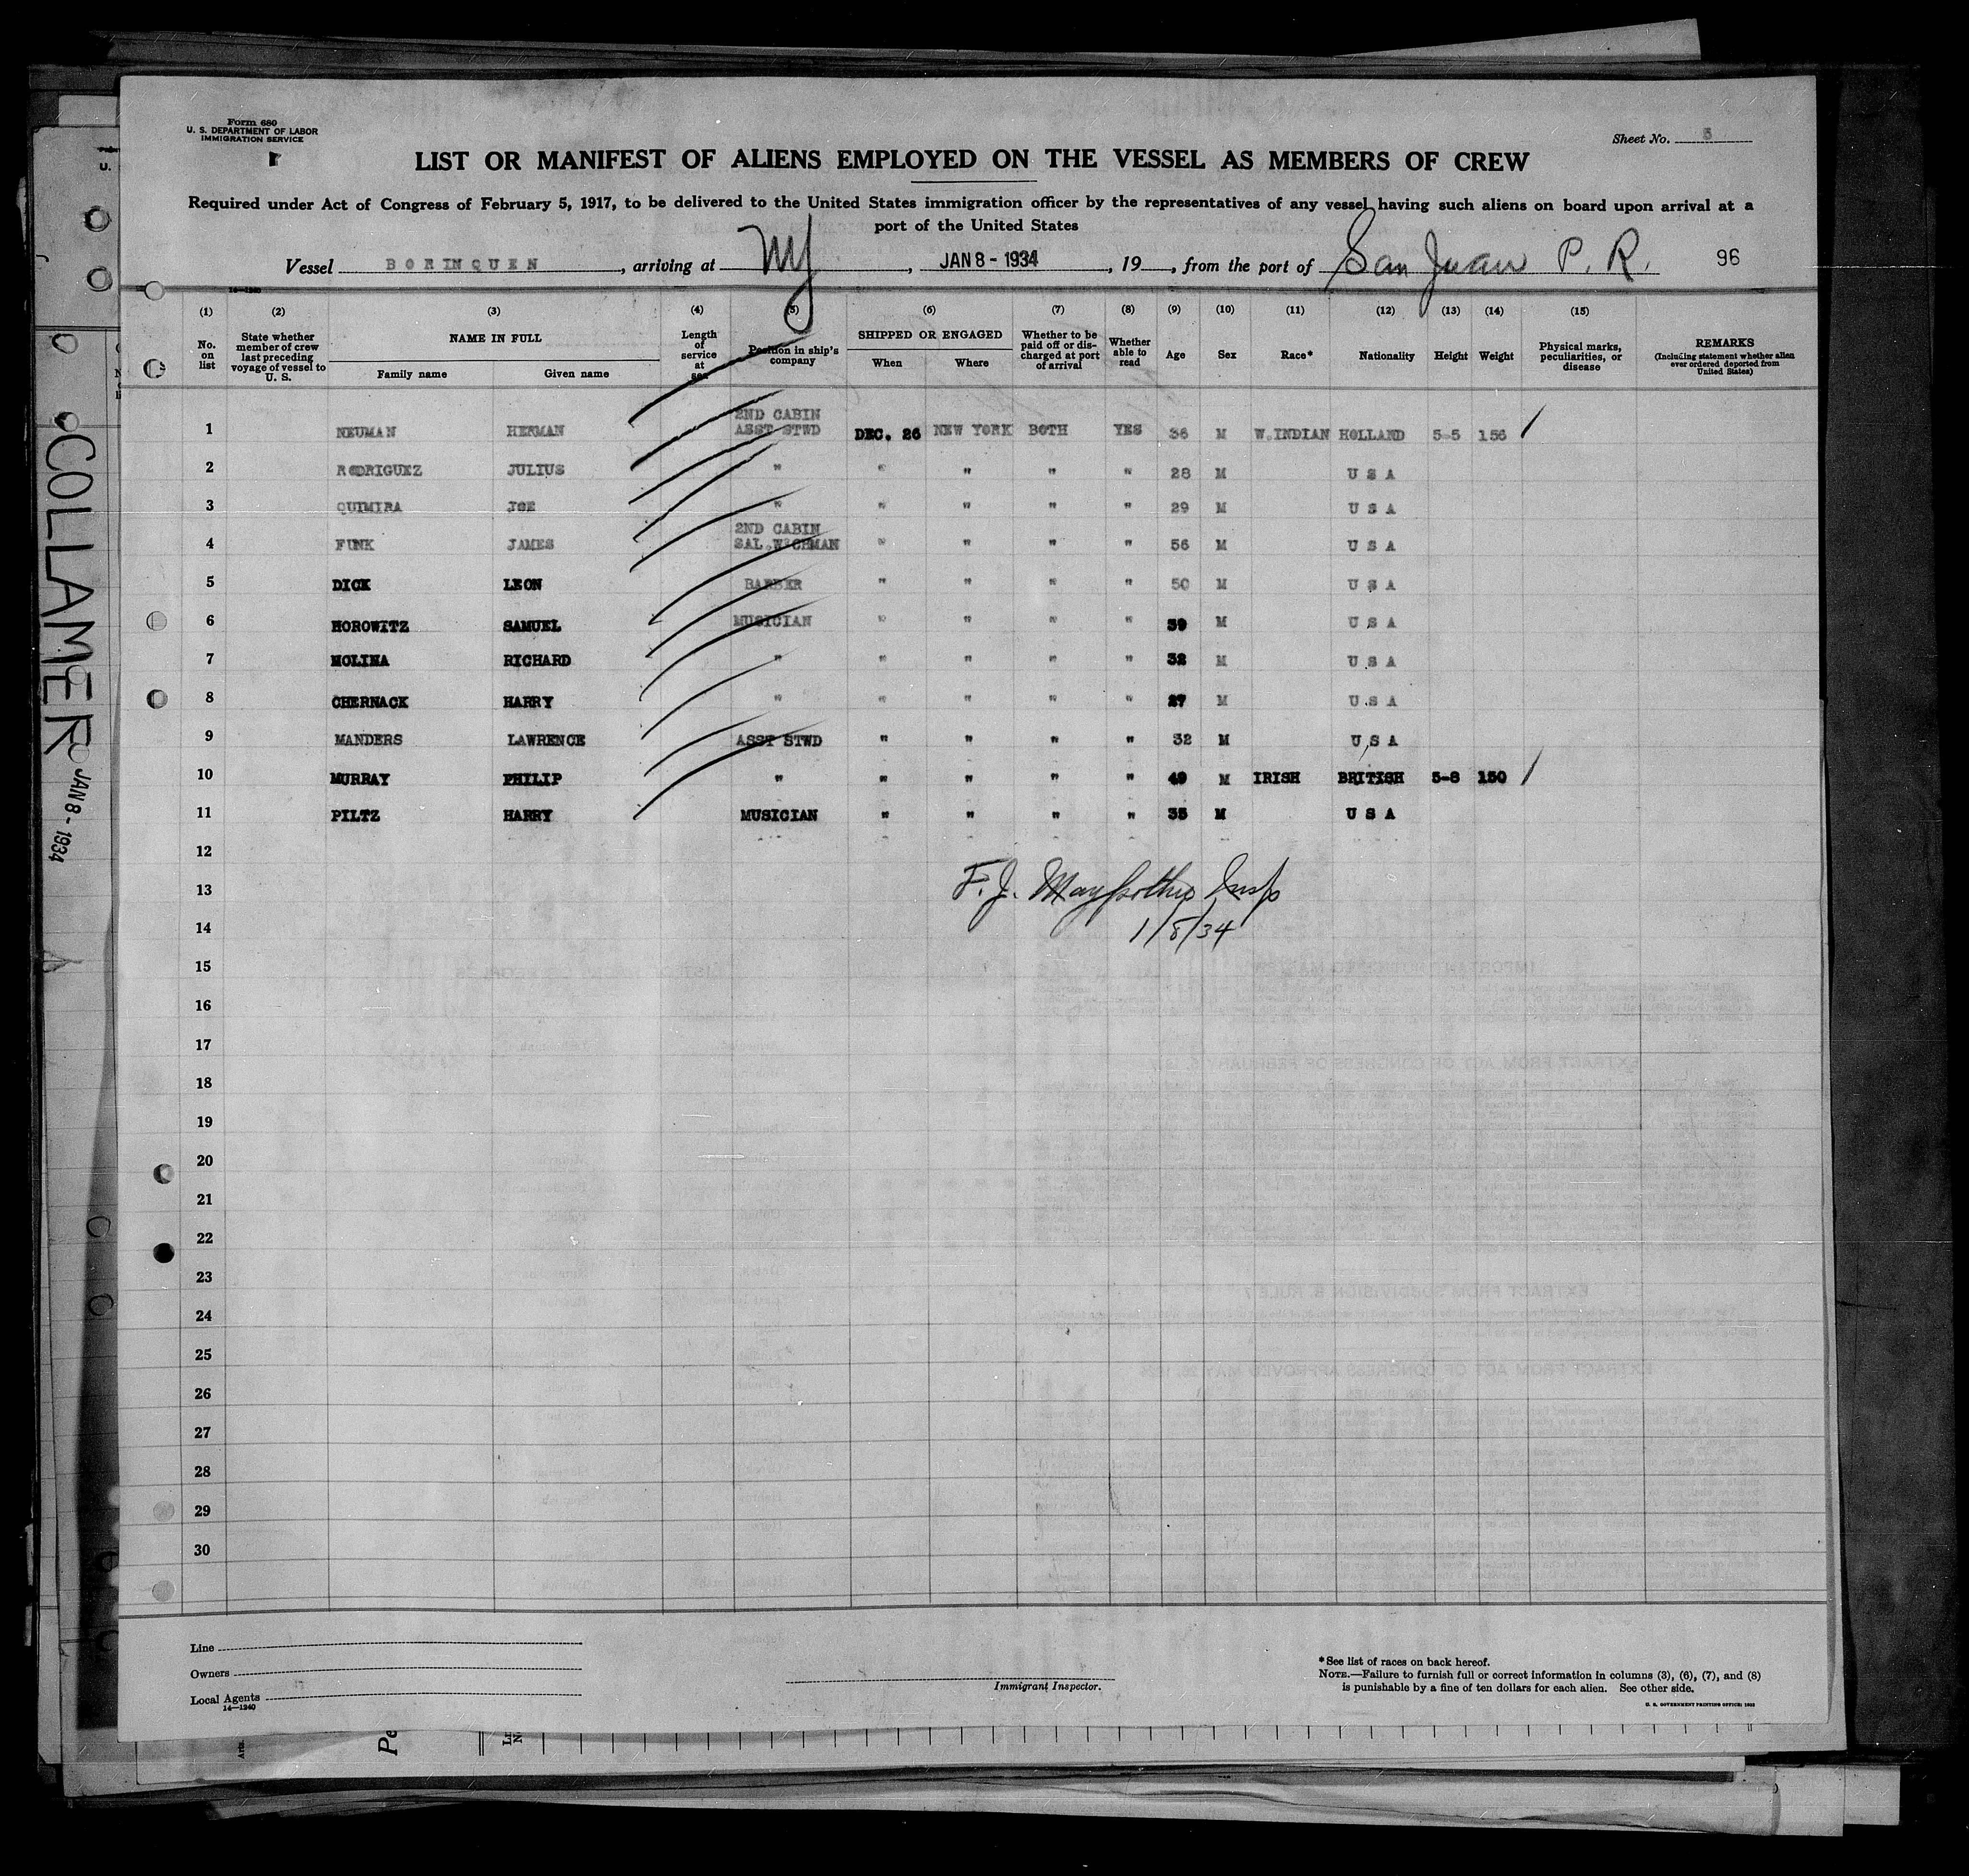 Form 680
U. S. DEPARTMENT OF LABOR
IMMIGRATION SERVICE
Sheet No. 5
LIST OR MANIFEST OF ALIENS EMPLOYED ON THE VESSEL AS MEMBERS OF CREW
Required under Act of Congress of February 5, 1917, to be delivered to the United States immigration officer by the representatives of any vessel having such aliens on board upon arrival at a
port of the United States
Vessel BORINQUEN, arriving at NY, JAN 8 - 1934, 19, from the port of San Juan P. R. 96
14—1240
(1) (2) (3) (4) (5) (6) (7) (8) (9) (10) (11) (12) (13) (14) (15)
No. on list State whether member of crew last preceding voyage of vessel to U. S. NAME IN FULL Family name Given name Length of service at sea Position in ship's company SHIPPED OR ENGAGED When Where Whether to be paid off or discharged at port of arrival Whether able to read Age Sex Race* Nationality Height Weight Physical marks, peculiarities, or disease REMARKS (Including statement whether alien ever ordered deported from United States)
1 NEUMAN HERMAN 2ND CABIN ASST STWD DEC. 26 NEW YORK BOTH YES 36 M W.INDIAN HOLLAND 5-5 156
2 RODRIGUEZ JULIUS " " " " " 28 M U S A
3 QUIMIRA JOE " " " " " 29 M U S A
4 FUNK JAMES 2ND CABIN SAL.W'CHMAN " " " " 56 M U S A
5 DICK LEON BARBER " " " " 50 M U S A
6 HOROWITZ SAMUEL MUSICIAN " " " " 39 M U S A
7 MOLINA RICHARD " " " " " 32 M U S A
8 CHERNACK HARRY " " " " " 27 M U S A
9 MANDERS LAWRENCE ASST STWD " " " " 32 M U S A
10 MURRAY PHILIP " " " " " 49 M IRISH BRITISH 5-8 150
11 PILTZ HARRY MUSICIAN " " " " 35 M U S A
12
13
F. J. Insp
14
1/8/34
15
16
17
18
19
20
21
22
23
24
25
26
27
28
29
30
Line
Owners
Local Agents
14—1240
Immigrant Inspector.
*See list of races on back hereof.
NOTE.—Failure to furnish full or correct information in columns (3), (6), (7), and (8)
is punishable by a fine of ten dollars for each alien. See other side.
U. S. GOVERNMENT PRINTING OFFICE: 1932
COLLAMER
JAN 8 - 1934